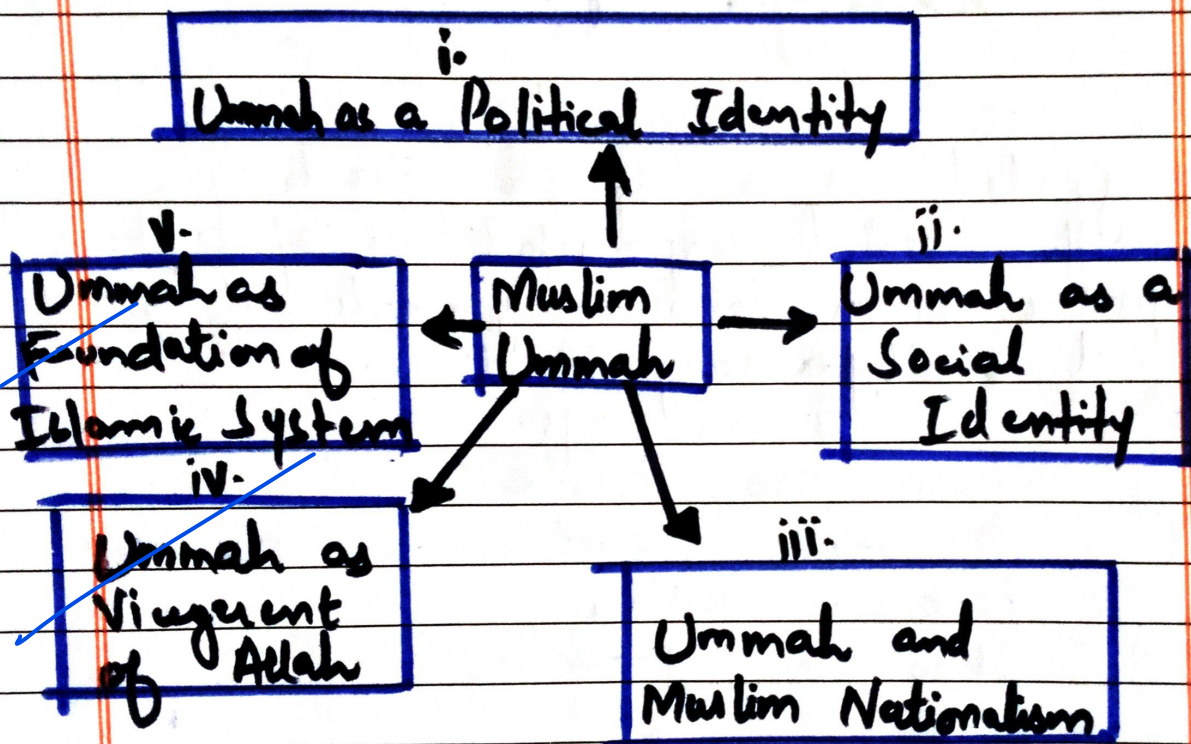 i.
Ummah as a Political Identity
v.
Ummah as
Foundation of
Islamic System
Muslim
Ummah
ii.
Ummah as a
Social
Identity
iv.
Ummah as
Vicegerent
of Allah
iii.
Ummah and
Muslim Nationalism